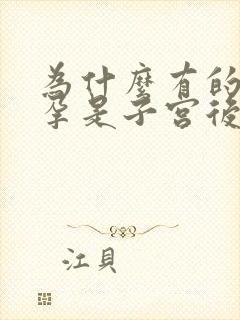 為什麼有的
孕是子宮後
江貝